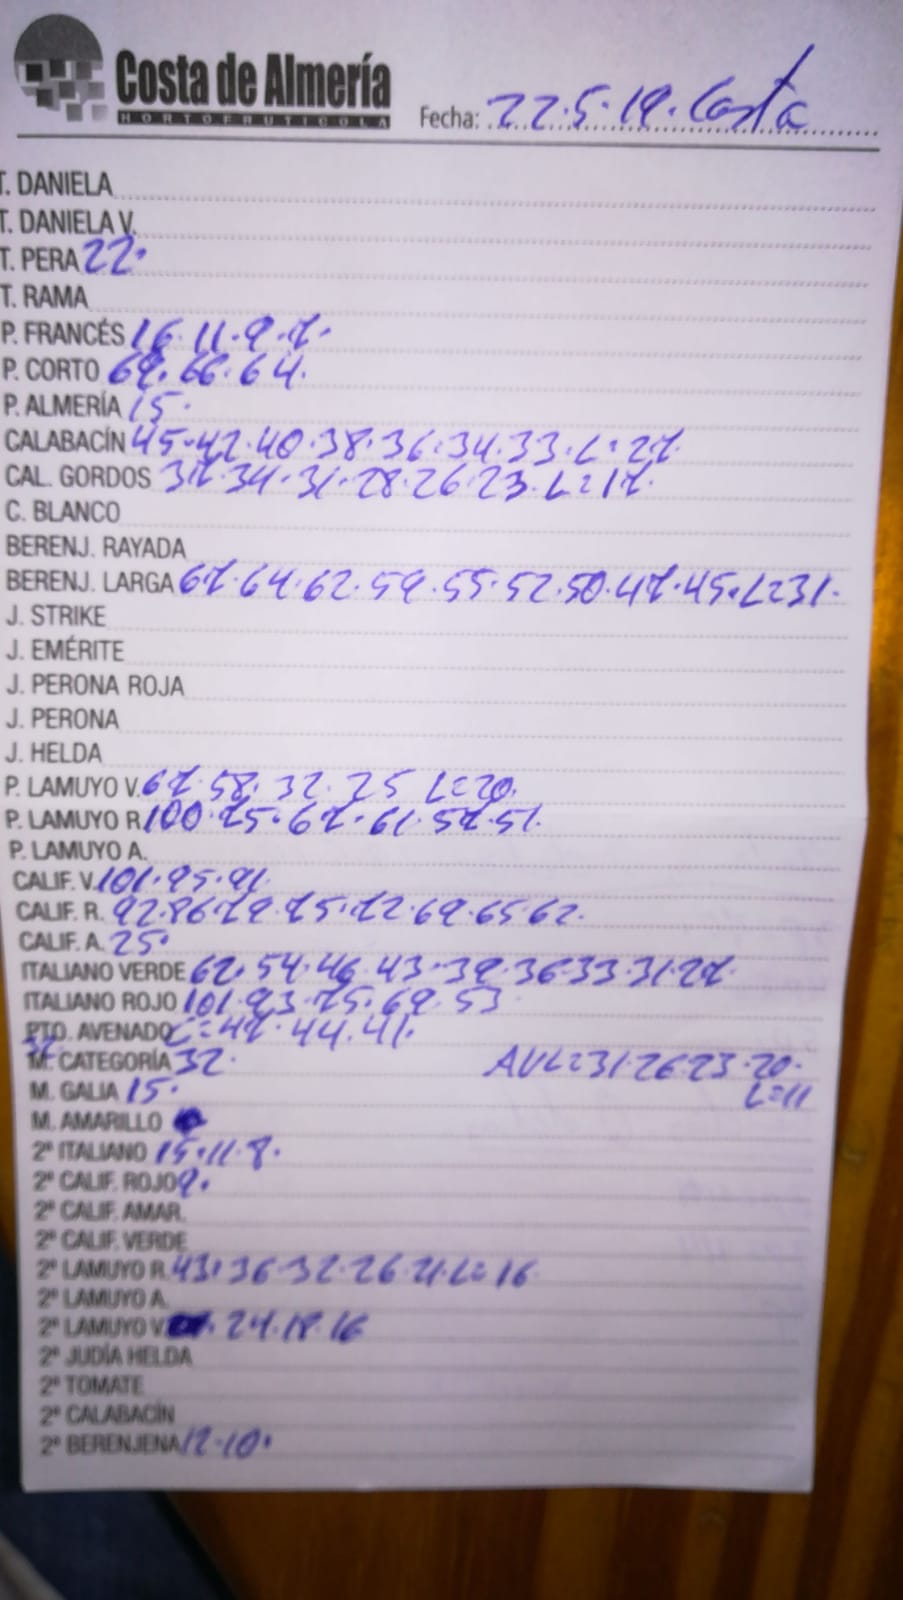 Costa de Almería
HORTOFRUTICOLA
Fecha: 22.5.19. Costa
T. DANIELA
T. DANIELA V.
T. PERA 22.
T. RAMA
P. FRANCÉS 16.11.9.7.
P. CORTO 69.66.64.
P. ALMERÍA 15.
CALABACÍN 45.42.40.38.36.34.33.L=27.
CAL. GORDOS 37.34.31.28.26.23.L=17.
C. BLANCO
BERENJ. RAYADA
BERENJ. LARGA 67.64.62.59.55.52.50.47.45.L=31.
J. STRIKE
J. EMÉRITE
J. PERONA ROJA
J. PERONA
J. HELDA
P. LAMUYO V. 67.58.32.25 L=20.
P. LAMUYO R. 100.75.67.61.57.51.
P. LAMUYO A.
CALIF. V. 101.95.91.
CALIF. R. 92.86.79.75.72.69.65.62.
CALIF. A. 25.
ITALIANO VERDE 62.54.46.43.39.36.33.31.27.
ITALIANO ROJO 101.93.75.69.53.
PTO. AVENADO C=47.44.41.
M. CATEGORÍA 32. AVL=31.26.23.20.
L=11
M. GALIA 15.
M. AMARILLO
2ª ITALIANO 15.11.8.
2ª CALIF. ROJO 9.
2ª CALIF. AMAR.
2ª CALIF. VERDE
2ª LAMUYO R. 43.36.32.26.21.L=16.
2ª LAMUYO A.
2ª LAMUYO V. 24.18.16
2ª JUDÍA HELDA
2ª TOMATE
2ª CALABACÍN
2ª BERENJENA 12.10.